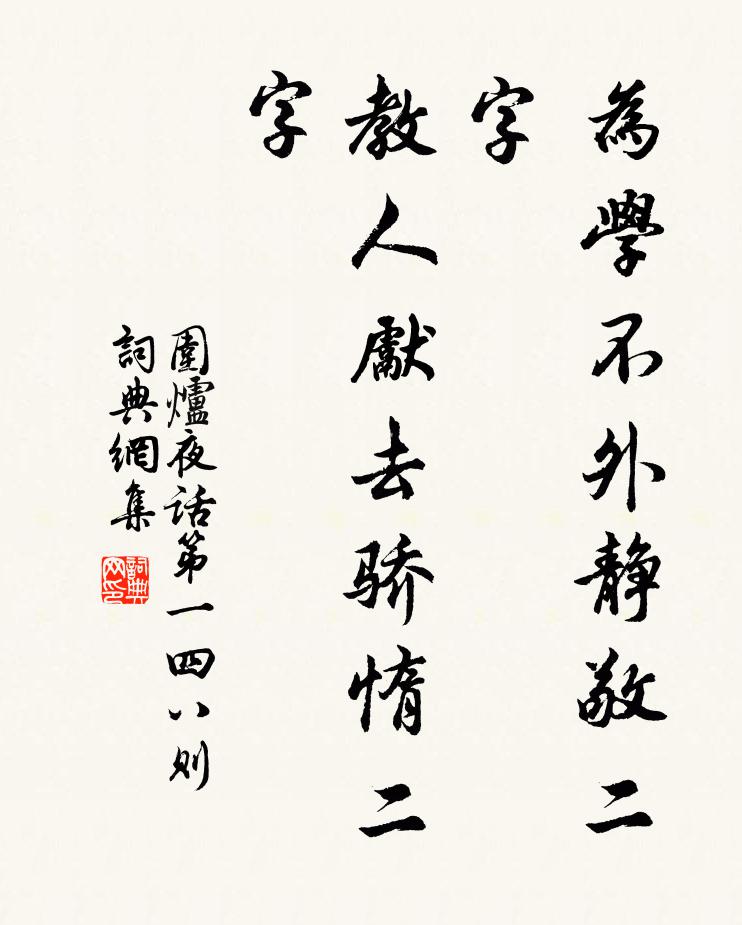 為學不外静敬二
字
教人獻去骄惰二
字
圍爐夜话第一四八则
詞典網集
詞典
网印